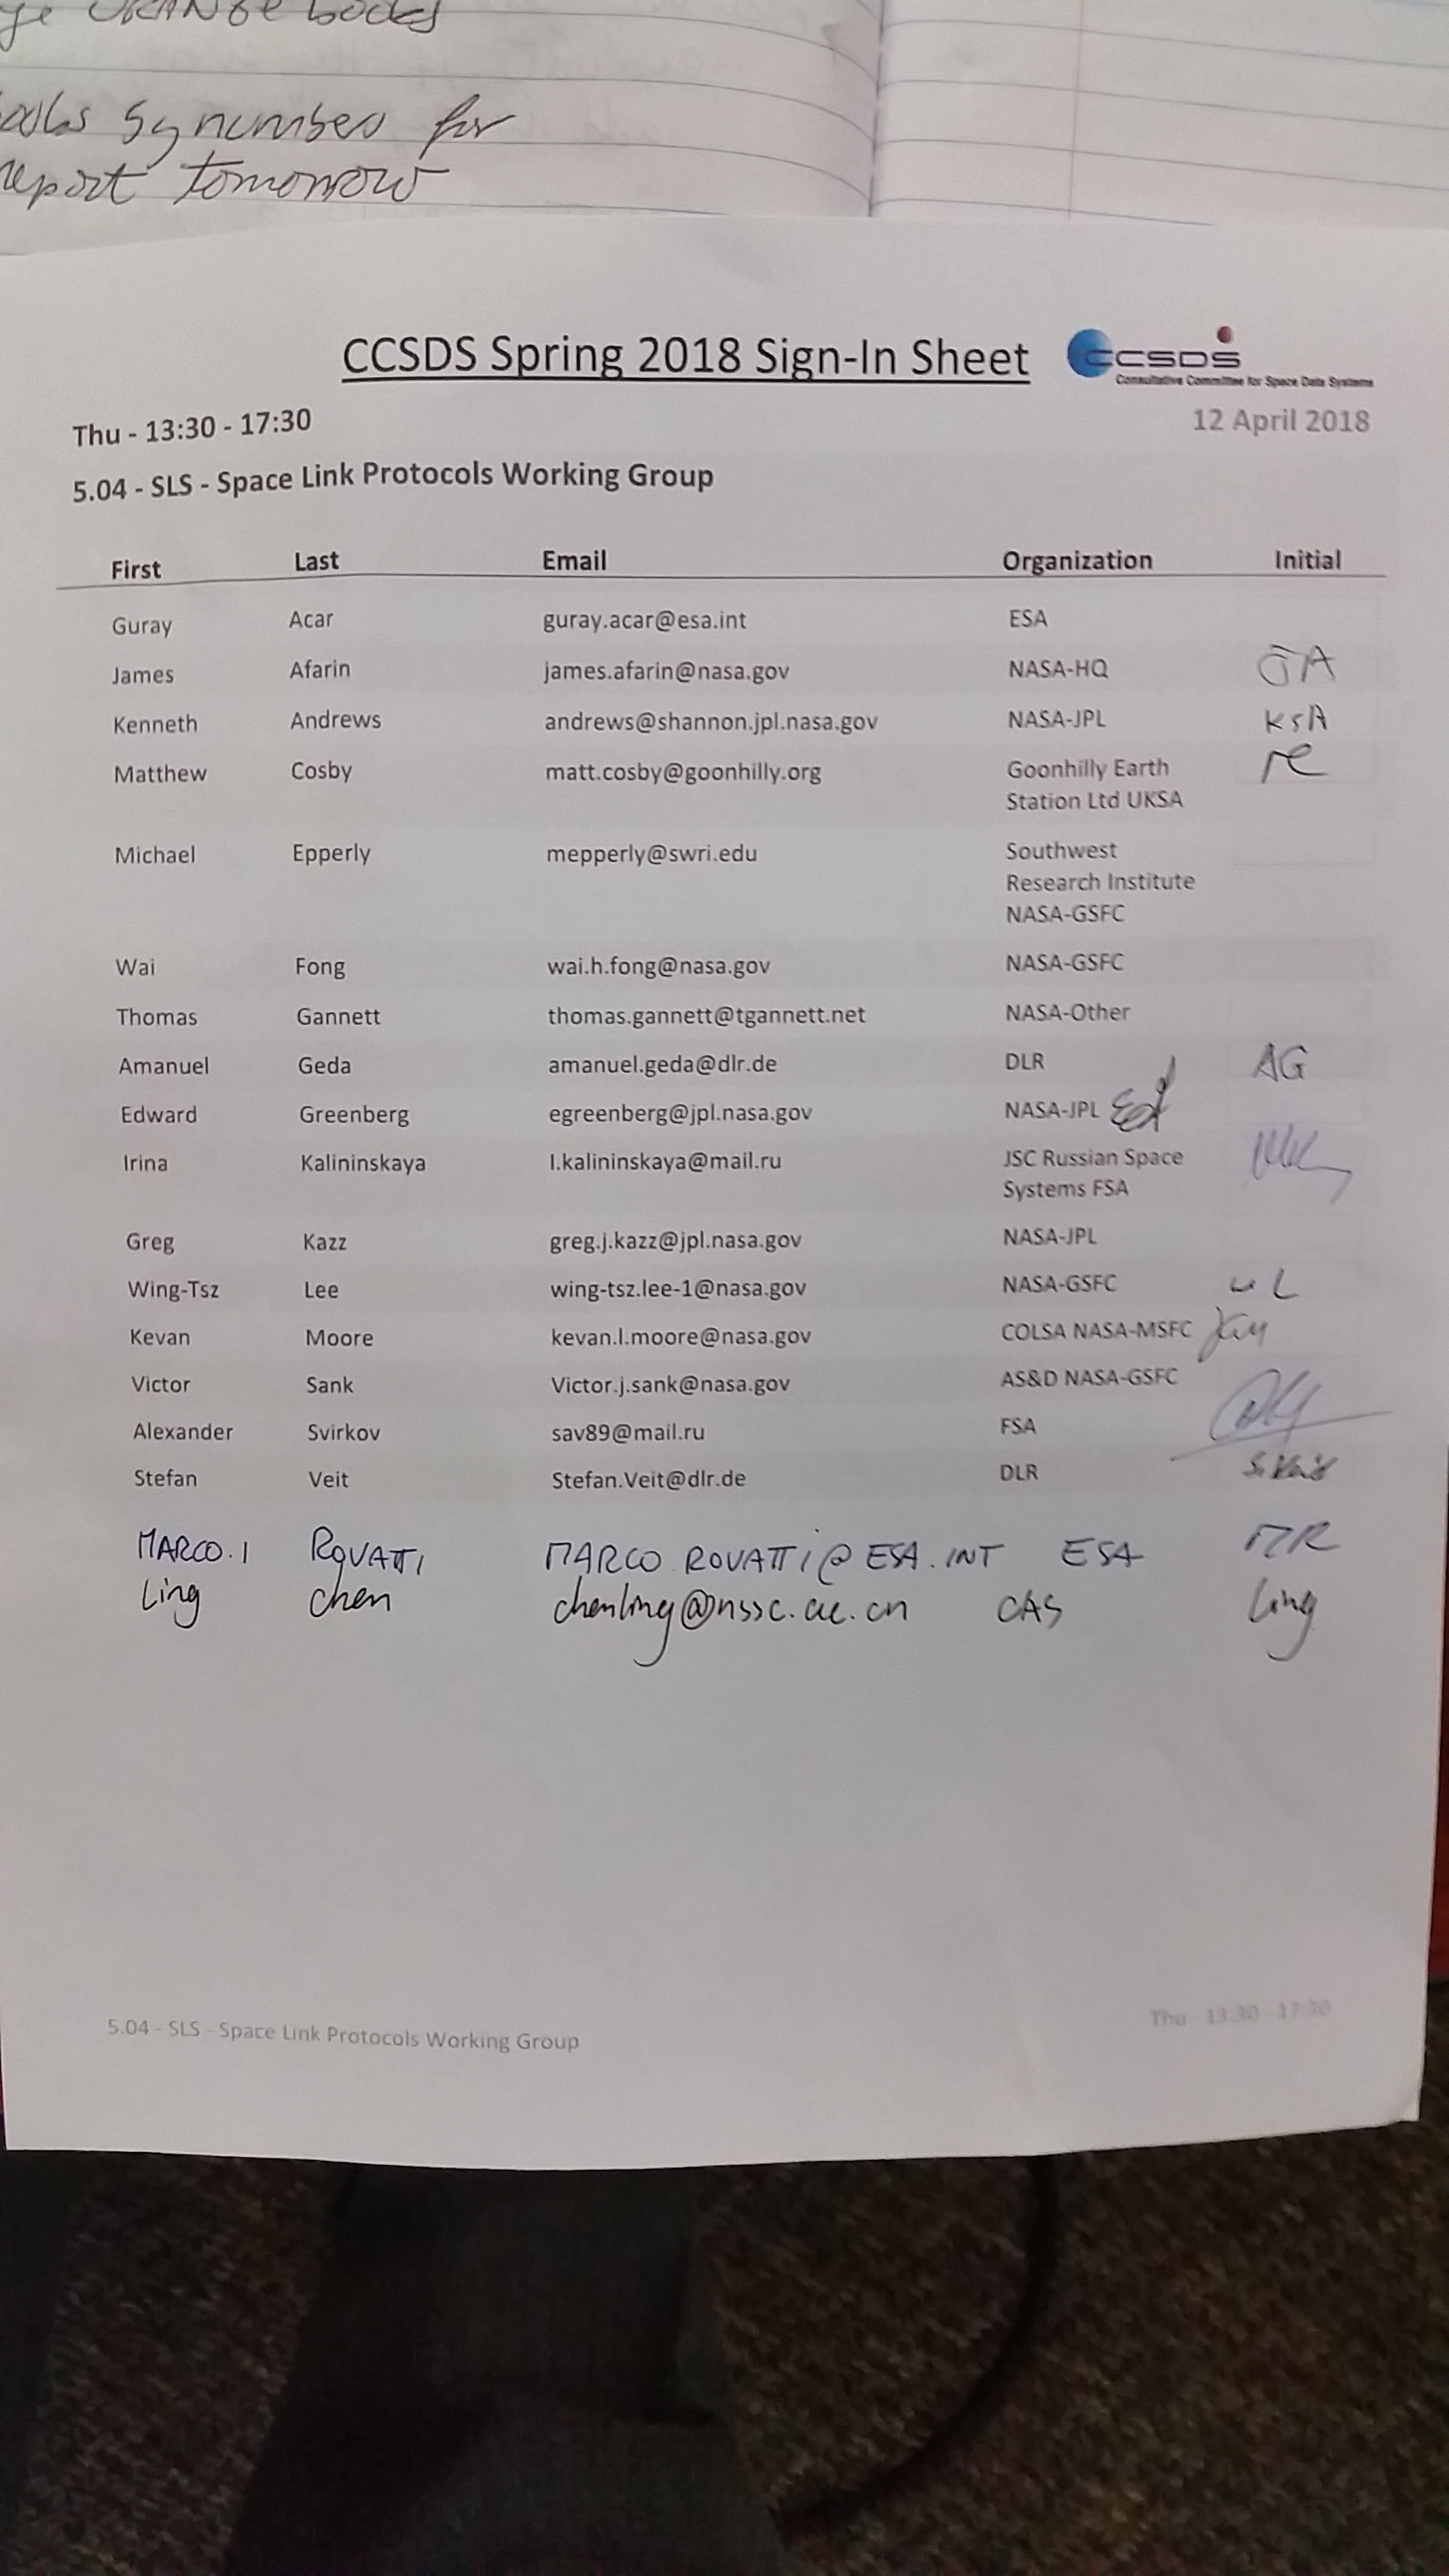 books
by number for
report tomorrow
CCSDS Spring 2018 Sign-In Sheet
CCSDS
Consultative Committee for Space Data Systems
Thu - 13:30 - 17:30 12 April 2018
5.04 - SLS - Space Link Protocols Working Group
First Last Email Organization Initial
Guray Acar guray.acar@esa.int ESA
James Afarin james.afarin@nasa.gov NASA-HQ JA
Kenneth Andrews andrews@shannon.jpl.nasa.gov NASA-JPL KSA
Matthew Cosby matt.cosby@goonhilly.org Goonhilly Earth
Station Ltd UKSA
Michael Epperly mepperly@swri.edu Southwest
Research Institute
NASA-GSFC
Wai Fong wai.h.fong@nasa.gov NASA-GSFC
Thomas Gannett thomas.gannett@tgannett.net NASA-Other
Amanuel Geda amanuel.geda@dlr.de DLR AG
Edward Greenberg egreenberg@jpl.nasa.gov NASA-JPL Ed
Irina Kalininskaya I.kalininskaya@mail.ru JSC Russian Space
Systems FSA
Greg Kazz greg.j.kazz@jpl.nasa.gov NASA-JPL
Wing-Tsz Lee wing-tsz.lee-1@nasa.gov NASA-GSFC WL
Kevan Moore kevan.l.moore@nasa.gov COLSA NASA-MSFC KLM
Victor Sank Victor.j.sank@nasa.gov AS&D NASA-GSFC
Alexander Svirkov sav89@mail.ru FSA
Stefan Veit Stefan.Veit@dlr.de DLR S. Veit
MARCO.I ROVATTI MARCO.ROVATTI@ESA.INT ESA MR
Ling chen chenling@nssc.ac.cn CAS Ling
5.04 - SLS - Space Link Protocols Working Group Thu - 13:30 - 17:30